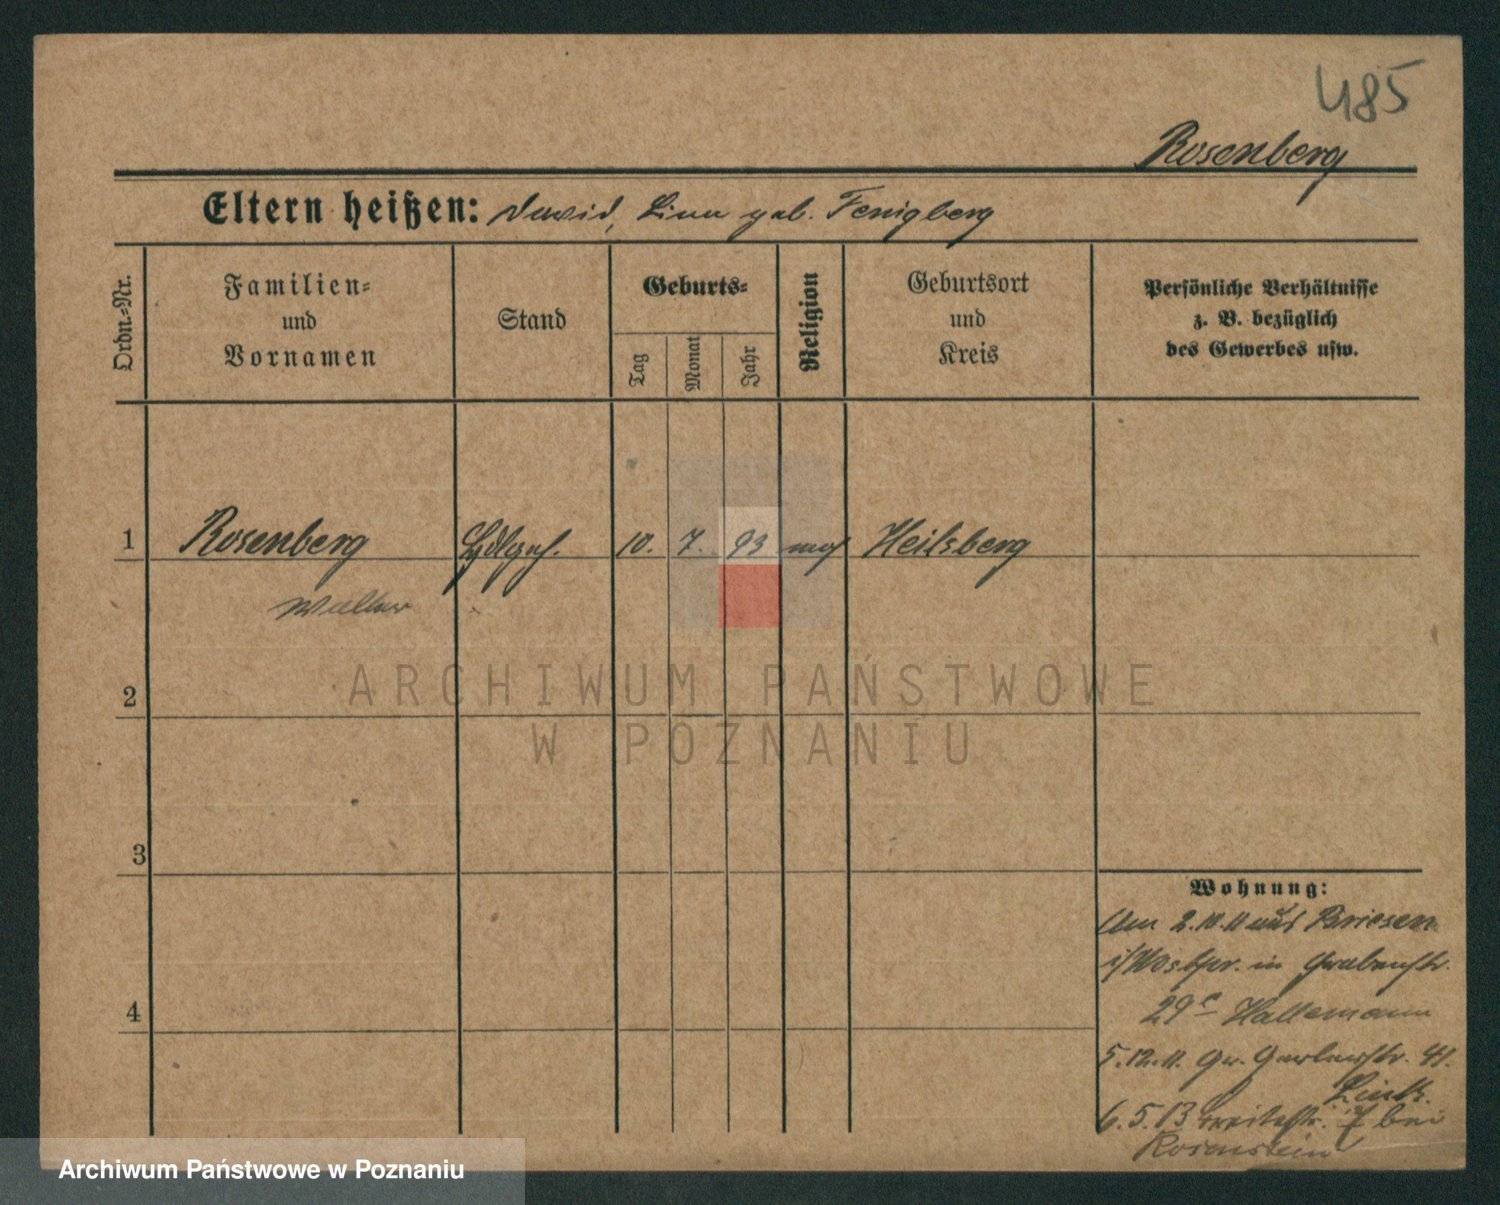 485
Rosenberg
Eltern heißen: David, Lina geb. Fenigberg
Ordn.=Nr.
Familien=
und
Vornamen
Stand
Geburts=
Tag
Monat
Jahr
Religion
Geburtsort
und
Kreis
Persönliche Verhältnisse
z. B. bezüglich
des Gewerbes usw.
1 Rosenberg Hdlgsgh. 10. 7. 93 mos Heilsberg
Walter
2
3
4
Wohnung:
Am 2.10.11 aus Briesen
i/Westpr. in Grabenstr.
29c Hallemann
5.12.11. Gr. Gerberstr. 41.
6.5.13 Breitestr. 7 bei
Rosenstein
ARCHIWUM PAŃSTWOWE
W POZNANIU
Archiwum Państwowe w Poznaniu